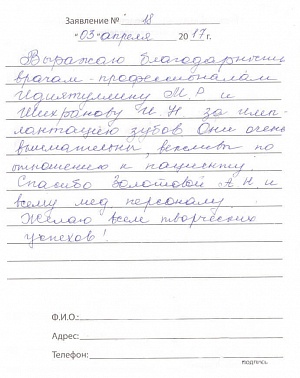 Заявление № 18
"03" апреля 2017 г.
Выражаю благодарность
врачам - профессионалам
Идиятуллину М.Р и
Шихранову И.Н. за имп-
лантацию зубов Они очень
внимательны, вежливы по
отношению к пациенту.
Спасибо Золотовой А.Н и
всему мед персоналу.
Желаю всем творческих
успехов!
Ф.И.О.:
Адрес:
Телефон:
подпись